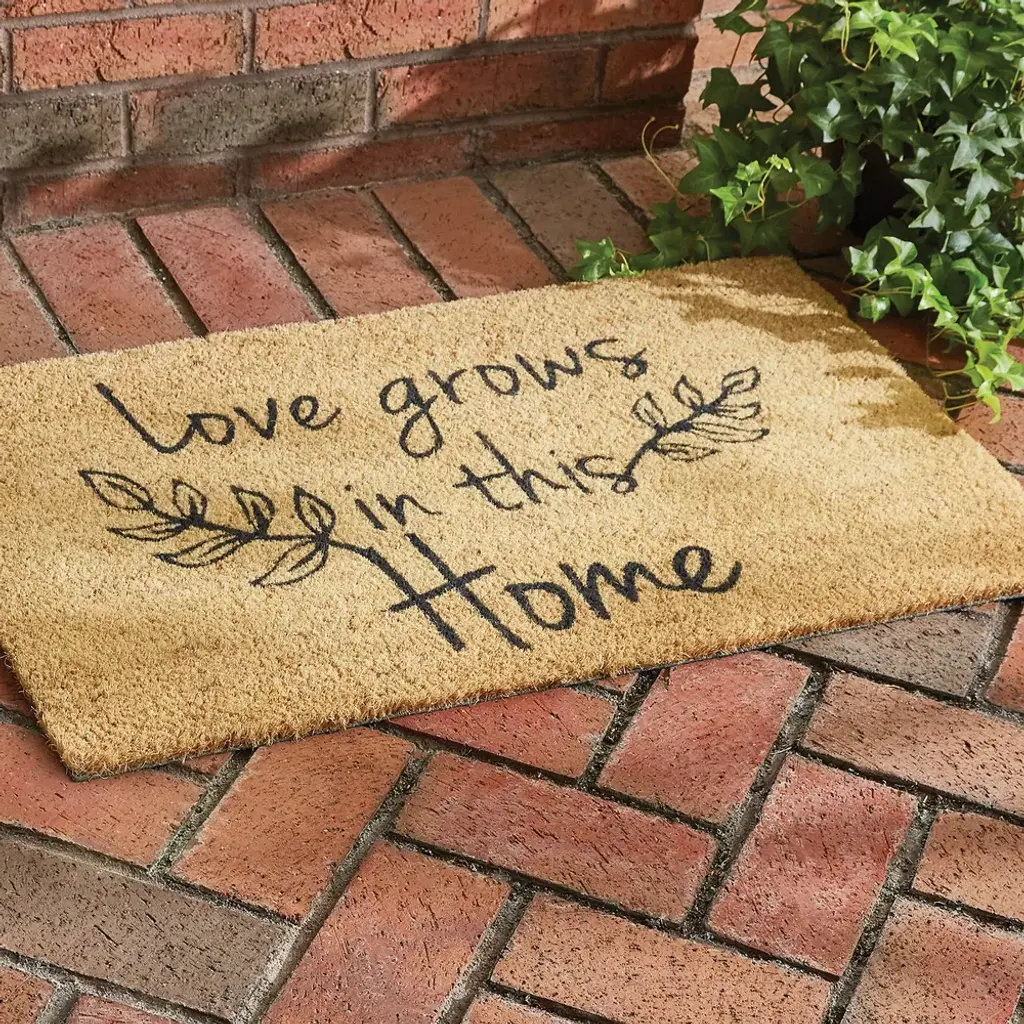 Love grows
in this
Home